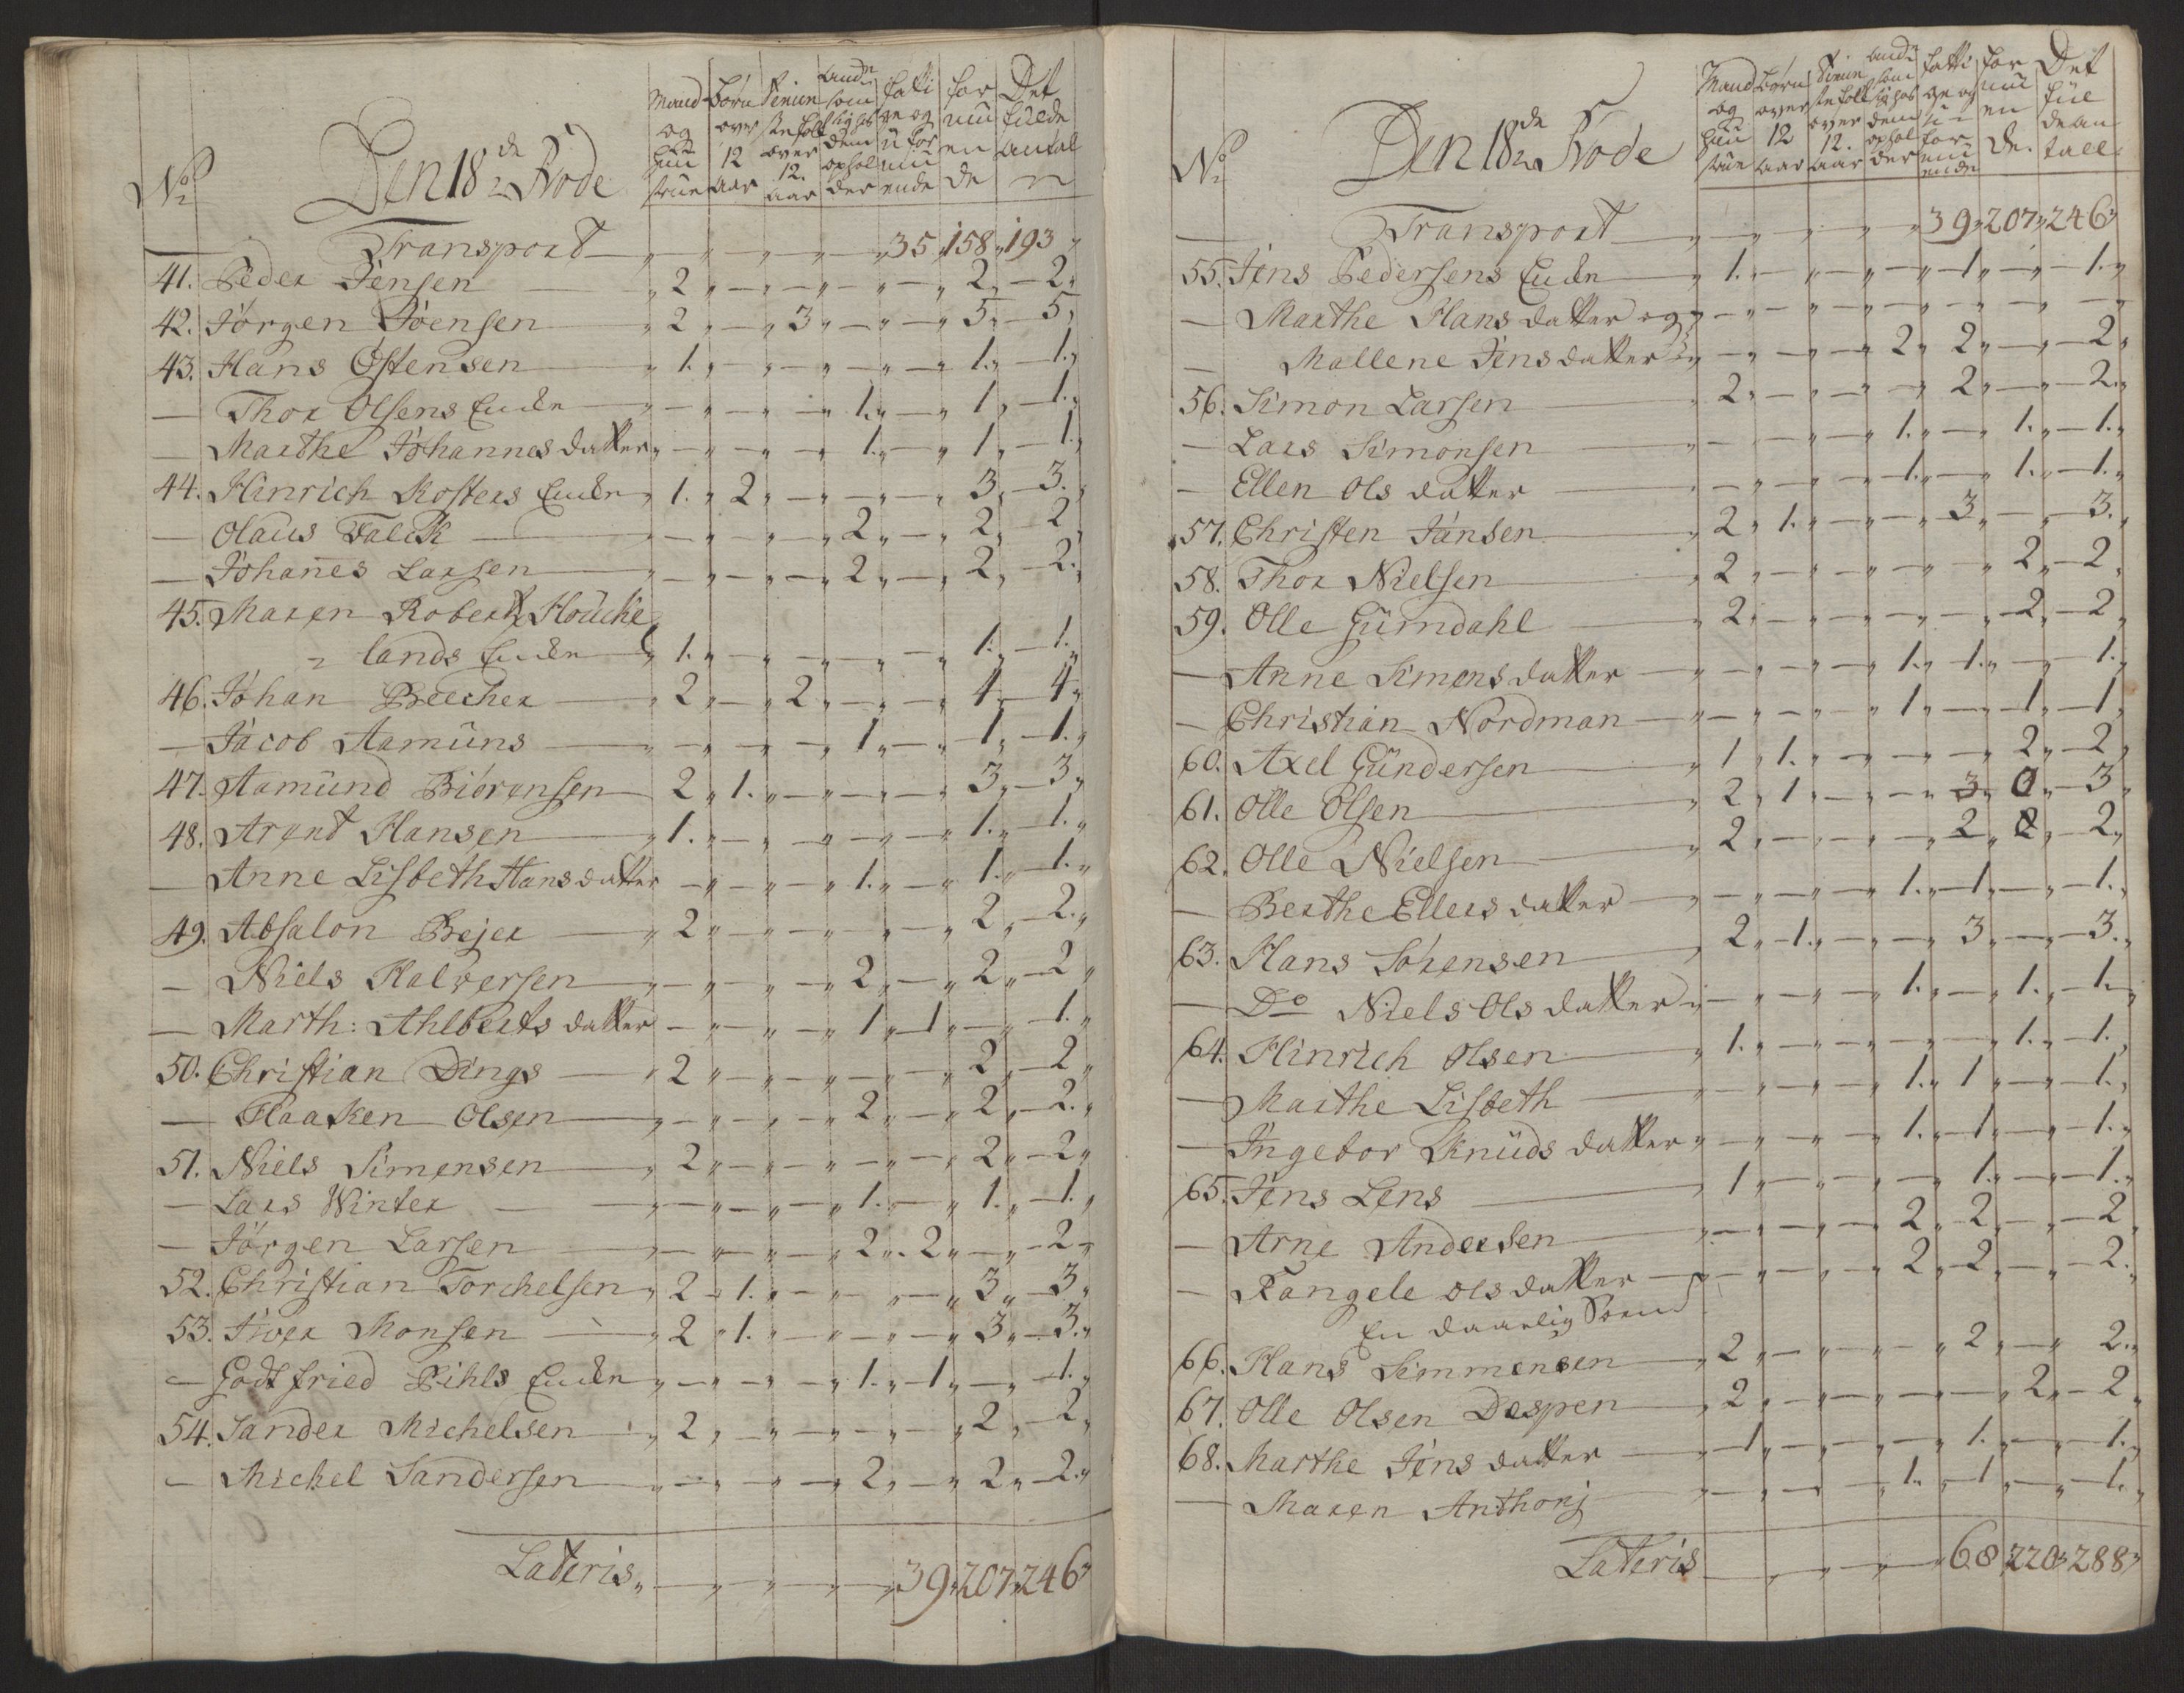 No
Den 18de Rode
Mand og Hustrue
Børn over 12 aar
Tieniste folk over 12. aar
andre som sig hos dem opholder
fatti ge og u for mu ende
for mu en de
Det fulde antal
Transport 35 158 193
41. Peder Jensen 2 2 2
42. Jörgen Jöensen 2 3 5 5
43. Hans Østensen 1. 1. 1.
Thor Olsens Encke 1. 1 1.
Marthe Johannes datter 1. 1 1.
44. Hinrich Kosters Encke 1. 2 3 3.
Olaus Falck 2 2 2
Johanes Larsen 2 2 2.
45. Maren Robertz Houcke
lands Encke 1. 1. 1.
46. Johan Beecher 2 2 4 4
Jacob Aamuns 1. 1 1.
47. Aamund Biörensen 2 1. 3 3
48. Arent Hansen 1. 1. 1.
Anne Lisbeth Hans datter 1. 1. 1.
49. Absalon Bejer 2 2 2.
Niels Halversen 2 2 2
Marth: Ahlberts datter 1 1 1.
50. Christian Dings 2 2 2
Haaken Olsen 2 2 2.
51. Niels Simensen 2 2 2
Lars Winter 1. 1. 1.
Jörgen Larsen 2 2 2
52. Christian Torchelsen 2 1. 3 3
53. Iver Monsen 2 1. 3 3.
Godtfried Pihls Encke 1. 1 1.
54. Sander Michelsen 2 2 2
Michel Sandersen 2 2 2.
Lateris 39 207 246
No
Den 18de Rode
Mand og Hustrue
Børn over 12 aar
Tieniste folk over 12. aar
andre som sig hos dem opholder
fatti ge og u for mu ende
for mu en de.
Det fulde an tall
Transport 39 207 246
55. Jens Pedersens Encke 1. 1 1.
Marthe Hans datter og
Mallene Jens datter 2 2 2
56. Simon Larsen 2 2 2.
Lars Simonsen 1. 1. 1.
Ellen Ols datter 1. 1. 1.
57. Christen Jansen 2 1. 3 3.
58. Thor Nielsen 2 2 2
59. Olle Gumdahl 2 2 2
Anne Simens datter 1. 1. 1.
Christian Nordman 1. 1 1
60. Axel Gundersen 1 1. 2 2
61. Olle Olsen 2 1 3 0 3
62. Olle Nielsen 2 2 2
Berthe Ellers datter 1. 1 1.
63. Hans Sörensen 2 1. 3 3.
Do Niels Ols datter 1. 1. 1.
64. Hinrich Olsen 1. 1. 1.
Marthe Lisbeth 1. 1 1.
Ingebor Knuds datter 1. 1 1.
65. Jens Lens 1 1. 1.
Arne Andersen 2 2 2
Rangele ols datter 2 2 2.
En daarlig
66. Hans Simmensen 2 2 2.
67. Olle Olsen Despen 2 2 2
68. Marthe Jens datter 1 1. 1.
Maren Anthonj 1. 1 1.
Lateris 68 220 288